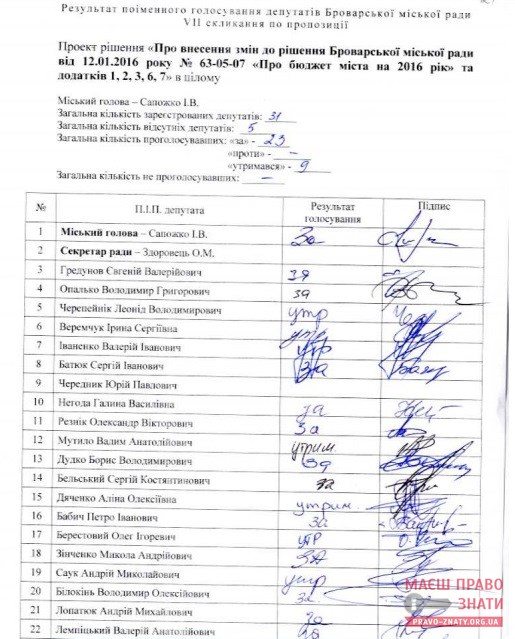 Результат поіменного голосування депутатів Броварської міської ради
VII скликання по пропозиції
Проект рішення «Про внесення змін до рішення Броварської міської ради
від 12.01.2016 року № 63-05-07 «Про бюджет міста на 2016 рік» та
додатків 1, 2, 3, 6, 7» в цілому
Міський голова – Сапожко І.В.
Загальна кількість зареєстрованих депутатів: 31
Загальна кількість відсутніх депутатів: 5
Загальна кількість проголосувавших: «за» - 23
«проти» - –
«утримався» - 9
Загальна кількість не проголосувавших: –
№ П.І.П. депутата Результат голосування Підпис
1 Міський голова – Сапожко І.В. За
2 Секретар ради – Здоровець О.М.
3 Гредунов Євгеній Валерійович за
4 Опалько Володимир Григорович за
5 Черепейнік Леонід Володимирович утр
6 Веремчук Ірина Сергіївна утр
7 Іваненко Валерій Іванович утр
8 Батюк Сергій Іванович За
9 Чередник Юрій Павлович
10 Негода Галина Василівна за
11 Резнік Олександр Вікторович За
12 Мутило Вадим Анатолійович утрим
13 Дудко Борис Володимирович За
14 Бельський Сергій Костянтинович За
15 Дяченко Аліна Олексіївна утрим
16 Бабич Петро Іванович За
17 Берестовий Олег Ігоревич утр
18 Зінченко Микола Андрійович ЗА
19 Саук Андрій Миколайович утр
20 Білокінь Володимир Олексійович За
21 Лопатюк Андрій Михайлович За
22 Лемпіцький Валерій Анатолійович За
МАЄШ ПРАВО
ЗНАТИ
PRAVO-ZNATY.ORG.UA